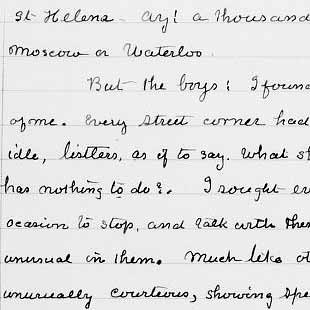 St Helena - Ay! a thousand
Moscow or Waterloo.
But the boys! I found
of me. Every street corner had
idle, listless, as if to say. What sh
has nothing to do?. I sought ev
ocasion to stop, and talk with thes
unusual in them. Much like ot
unusually courteous, showing spe